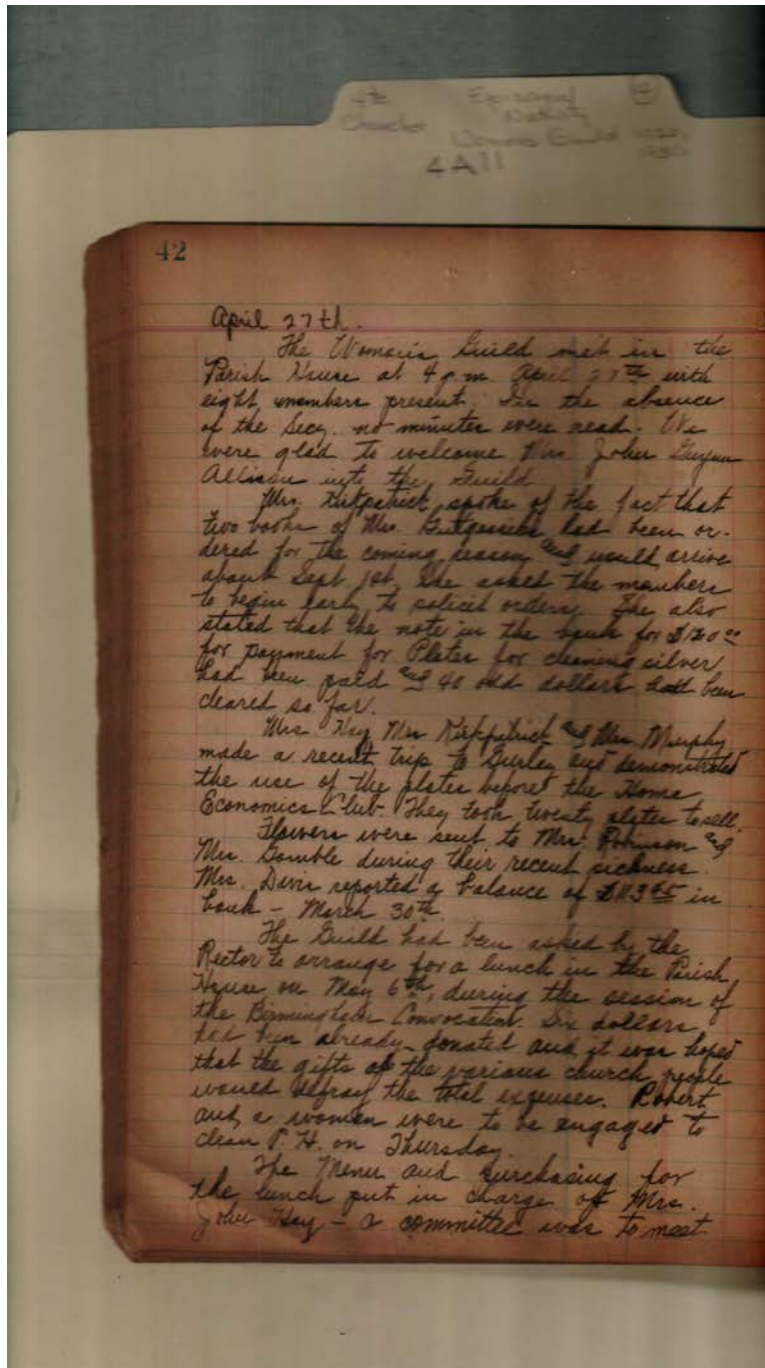 4th Episcopal 4
Church Nativity
Women's Guild
4A11
42
April 27th.
The Woman's Guild met in the
Parish House at 4 p.m. April 27th with
eight members present. In the absence
of the Secy. no minutes were read. We
were glad to welcome Mrs. John
Allison into the Guild
Mrs. Kirkpatrick spoke of the fact that
two books of Mrs. had been or-
dered for the coming season and would arrive
about Sept 1st. She asked the members
to begin early to solicit orders. She also
stated that the note in the bank for
for payment for Plates for cleaning silver
had been paid and 40 odd dollars had been
cleared so far.
Mrs. Hay Mrs Kirkpatrick and Mrs. Murphy
made a recent trip to Gurley and demonstrated
the use of the plates before the Home
Economics Club. They took twenty plates to sell.
Flowers were sent to Mrs. Robinson and
Mrs. Gamble during their recent sickness.
Mrs. Davis reported a balance of in
bank - March 30th.
The Guild had been asked by the
Rector to arrange for a lunch in the Parish
House on May 6th, during the session of
the Birmingham Convocation. Six dollars
had been already donated and it was hoped
that the gifts of the various church people
would defray the total expenses. Robert
and a women were to be engaged to
clean P. H. on Thursday.
The Menu and purchasing for
the lunch put in charge of Mrs.
John Hay - a committee was to meet